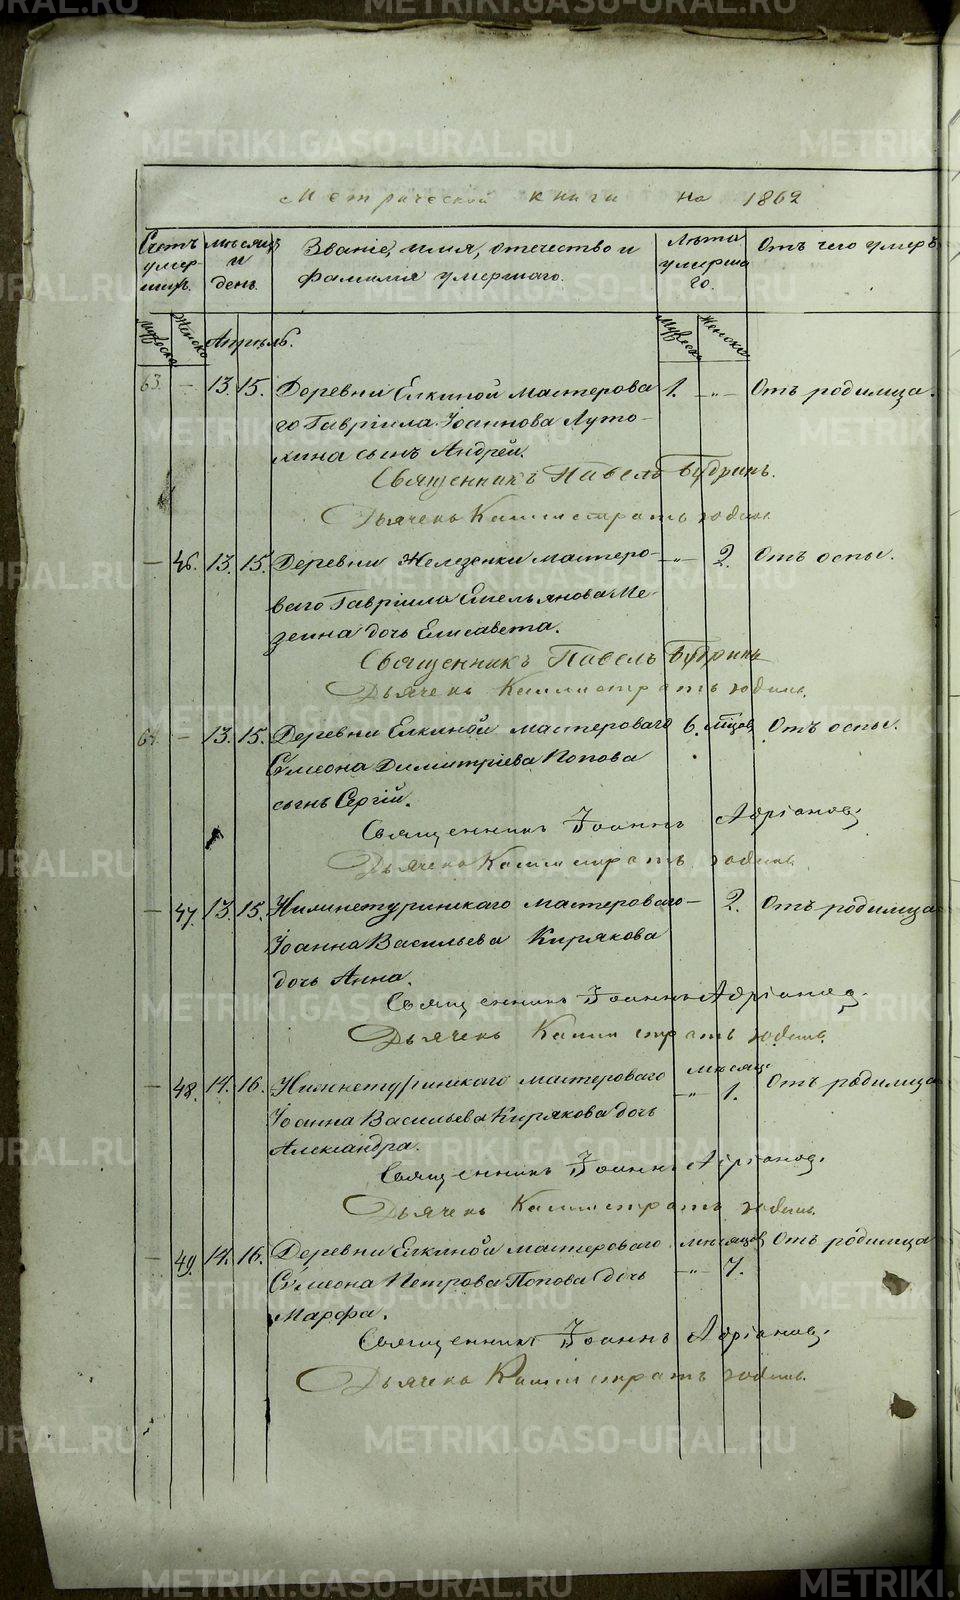 Метрической книги на 1862
Счетъ умер-шихъ. Мѣсяцъ и день. Званіе, имя, отечество и фамилія умершаго. Лѣта умерша го. Отъ чего умеръ
Мужеска Женска Апрѣль. Мужеска Женска
63. — 13. 15. Деревни Елкиной мастерова 1. —„— Отъ родимца.
го Гавріила Іоаннова Луто-
хина сынъ Андрей.
Священникъ Павелъ Будринъ.
Дьячекъ Каллистратъ
— 46. 13. 15. Деревни Железенки мастеро- —„— 2. Отъ оспы.
ваго Гавріила Емельянова Ме-
зеина дочь Елисавета.
Священникъ Павелъ Будринъ
Дьячекъ Каллистратъ
64. — 13. 15. Деревни Елкиной мастероваго 6. мѣсяцов Отъ оспы.
Сѵмеона Димитріева Попова
сынъ Сергій.
Священникъ Іоаннъ Адріановъ
Дьячекъ Каллистратъ
— 47. 13. 15. Нижнетуринскаго мастероваго — 2. Отъ родимца
Іоанна Васильева Кирякова
дочь Анна.
Священникъ Іоаннъ Адріановъ.
Дьячекъ Каллистратъ
— 48. 14. 16. Нижнетуринскаго мастероваго мѣсяц. —„— 1. Отъ родимца
Іоанна Васильева Кирякова дочь
Александра.
Священникъ Іоаннъ Адріановъ.
Дьячекъ Каллистратъ
— 49. 14. 16. Деревни Елкиной мастероваго мѣсяцов —„— 7. Отъ родимца
Сѵмеона Петрова Попова дочь
Марфа.
Священникъ Іоаннъ Адріановъ.
Дьячекъ Каллистратъ
METRIKI.GASO-URAL.RU